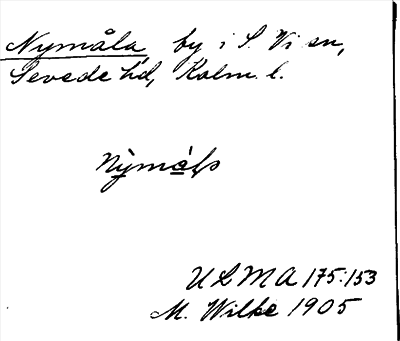 Nymåla, by i S. Vi sn,
Sevede hd, Kalm. l.
ULMA 175:153
M. Wilke 1905